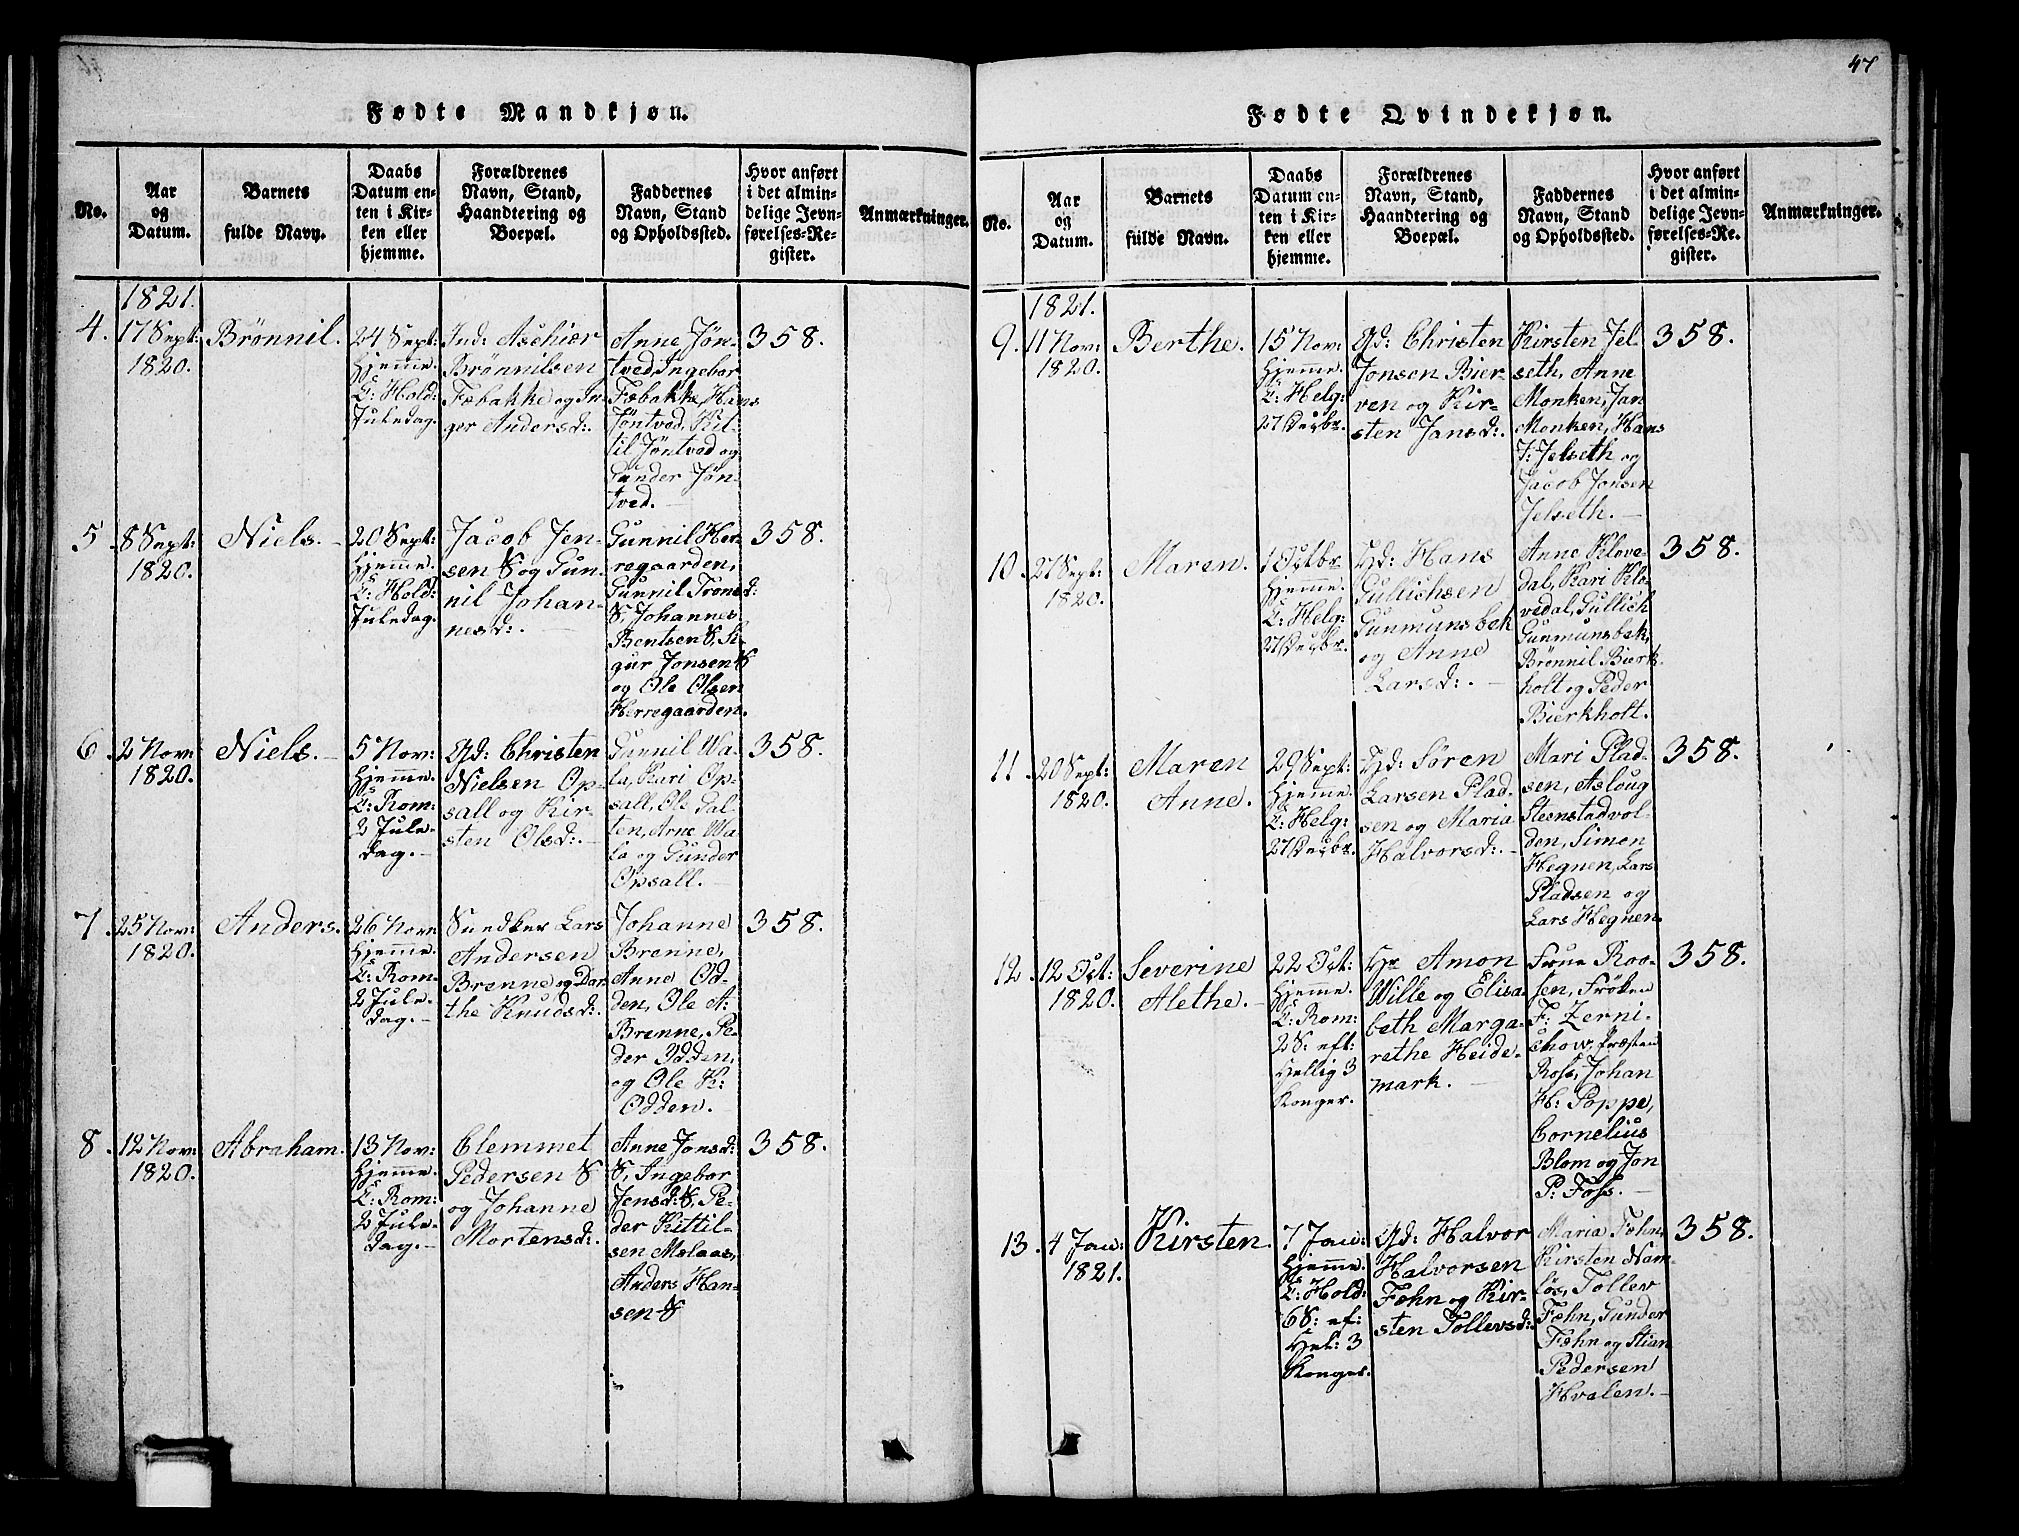 47
Fødte Mandkjøn.
No.
Aar
og
Datum.
Barnets
fulde Navn.
Daabs
Datum en-
ten i Kir-
ken eller
hjemme.
Forældrenes
Navn, Stand,
Haandtering og
Boepæl.
Faddernes
Navn, Stand
og Opholdssted.
Hvor anført
i det almin-
delige Jevn-
førelses-Re-
gister.
Anmærkninger.
1821.
4.
17 Sept:
1820.
Brønnil.
24 Sept:
Hjemme.
T: Hold:
Juledag.
Ind: Aschier
Brønnilsen
Fæbakke og In-
ger Andersd:
Anne Jøn-
tved, Ingebor
Fæbakke, Hans
Jøntved, Kit-
til Jøntved og
Gunder Jøn-
tved.
358.
5
8 Sept:
1820.
Niels.
20 Sept:
Hjemme.
T: Hold:
Juledag.
Jacob Jen-
sen S og Gun-
nil Johan-
nesd:
Gunnil Her-
regaarden,
Gunnil Tronsd:
S, Johannes
Bentsen S, Si-
gur Jonsen S
og Ole Olsen
Herregaarden.
358.
6
2 Nov:
1820.
Niels.
5 Nov:
Hjemme.
T: Rom:
2 Jule-
dag.
Gd: Christen
Nielsen Op-
sall og Kir-
sten Olsd:
Gunnil Wa-
la, Kari Op-
sall, Ole Dal-
ten, Arne Wa-
la og Gunder
Opsall.
358.
7
25 Nov:
1820.
Anders.
26 Nov:
Hjemme.
T: Rom:
2 Jule-
dag.
Lars
Andersen
Brenne og Dor-
the Knudsd:
Johanne
Brenne,
Anne Od-
den, Ole A:
Brenne, Pe-
der Odden,
og Ole K:
Odden.
358.
8.
12 Nov:
1820.
Abraham.
13 Nov:
Hjemme.
T: Rom:
2 Jule-
dag.
Clemmet
Pedersen S
og Johanne
Mortensd:
Anne Jonsd:
S, Ingebor
Jensd: S, Pe-
der Kittil-
sen Melaas,
Anders Han-
sen S
358.
Fødte Qvindekjøn.
No.
Aar
og
Datum.
Barnets
fulde Navn.
Daabs
Datum en-
ten i Kir-
ken eller
hjemme.
Forældrenes
Navn, Stand,
Haandtering og
Boepæl.
Faddernes
Navn, Stand
og Opholdssted.
Hvor anført
i det almin-
delige Jevn-
førelses-Re-
gister.
Anmærkninger.
1821.
9.
11 Nov:
1820.
Berthe.
15 Nov:
Hjemme.
T: Helg:
27 Decbr.
Gd: Christen
Jonsen Bier-
ven og Kir-
sten Jansd:
Kirsten Jel-
seth, Anne
Monken, Jan
Monken, Hans
J: Jelseth og
Jacob Jonsen
Jelseth.
358.
10.
27 Sept:
1820.
Maren.
1 Octbr
Hjemme.
T: Helg:
27 Decbr.
Hd: Hans
Gullichsen
Gunmunsbek
og Anne
Larsd:
Anne Klove-
dal, Kari Klo-
vedal, Gullich
Gunmunsbek,
Brønnil Bierk-
holt og Peder
Bierkholt.
358.
11.
20 Sept:
1820.
Maren
Anne.
29 Sept:
Hjemme.
T: Helg:
27 Decbr.
Hd: Søren
Larsen Plad-
sen og Maria
Halvorsd:
Mari Plad-
sen, Asloug
Steenstadvol-
den, Simon
Hegnen, Lars
Pladsen og
Lars Hegnen.
358.
12.
12 Oct:
1820.
Severine
Alethe.
22 Oct:
Hjemme.
T: Rom:
2 S: eft:
Hellig 3
Konger.
Hr Amon
Wille og Elisa-
beth Marga-
rethe Heide-
mark.
Frue Roo-
sen, Frøken
F: Zerni-
chow, Præsten
Ross, Johan
H: Poppe,
Cornelius
Blom og Jon
P: Foss.
358.
13.
4 Jan:
1821.
Kirsten.
7 Jan:
Hjemme.
T: Hold:
6 S: ef:
Hel: 3
Konger.
Gd: Halvor
Halvorsen
Fæhn og Kir-
sten Tollevsd:
Maria Fæhn,
Kirsten Nam-
løs, Tollev
Fæhn, Gunder
Fæhn og Stian
Pedersen
Hvalen.
358.